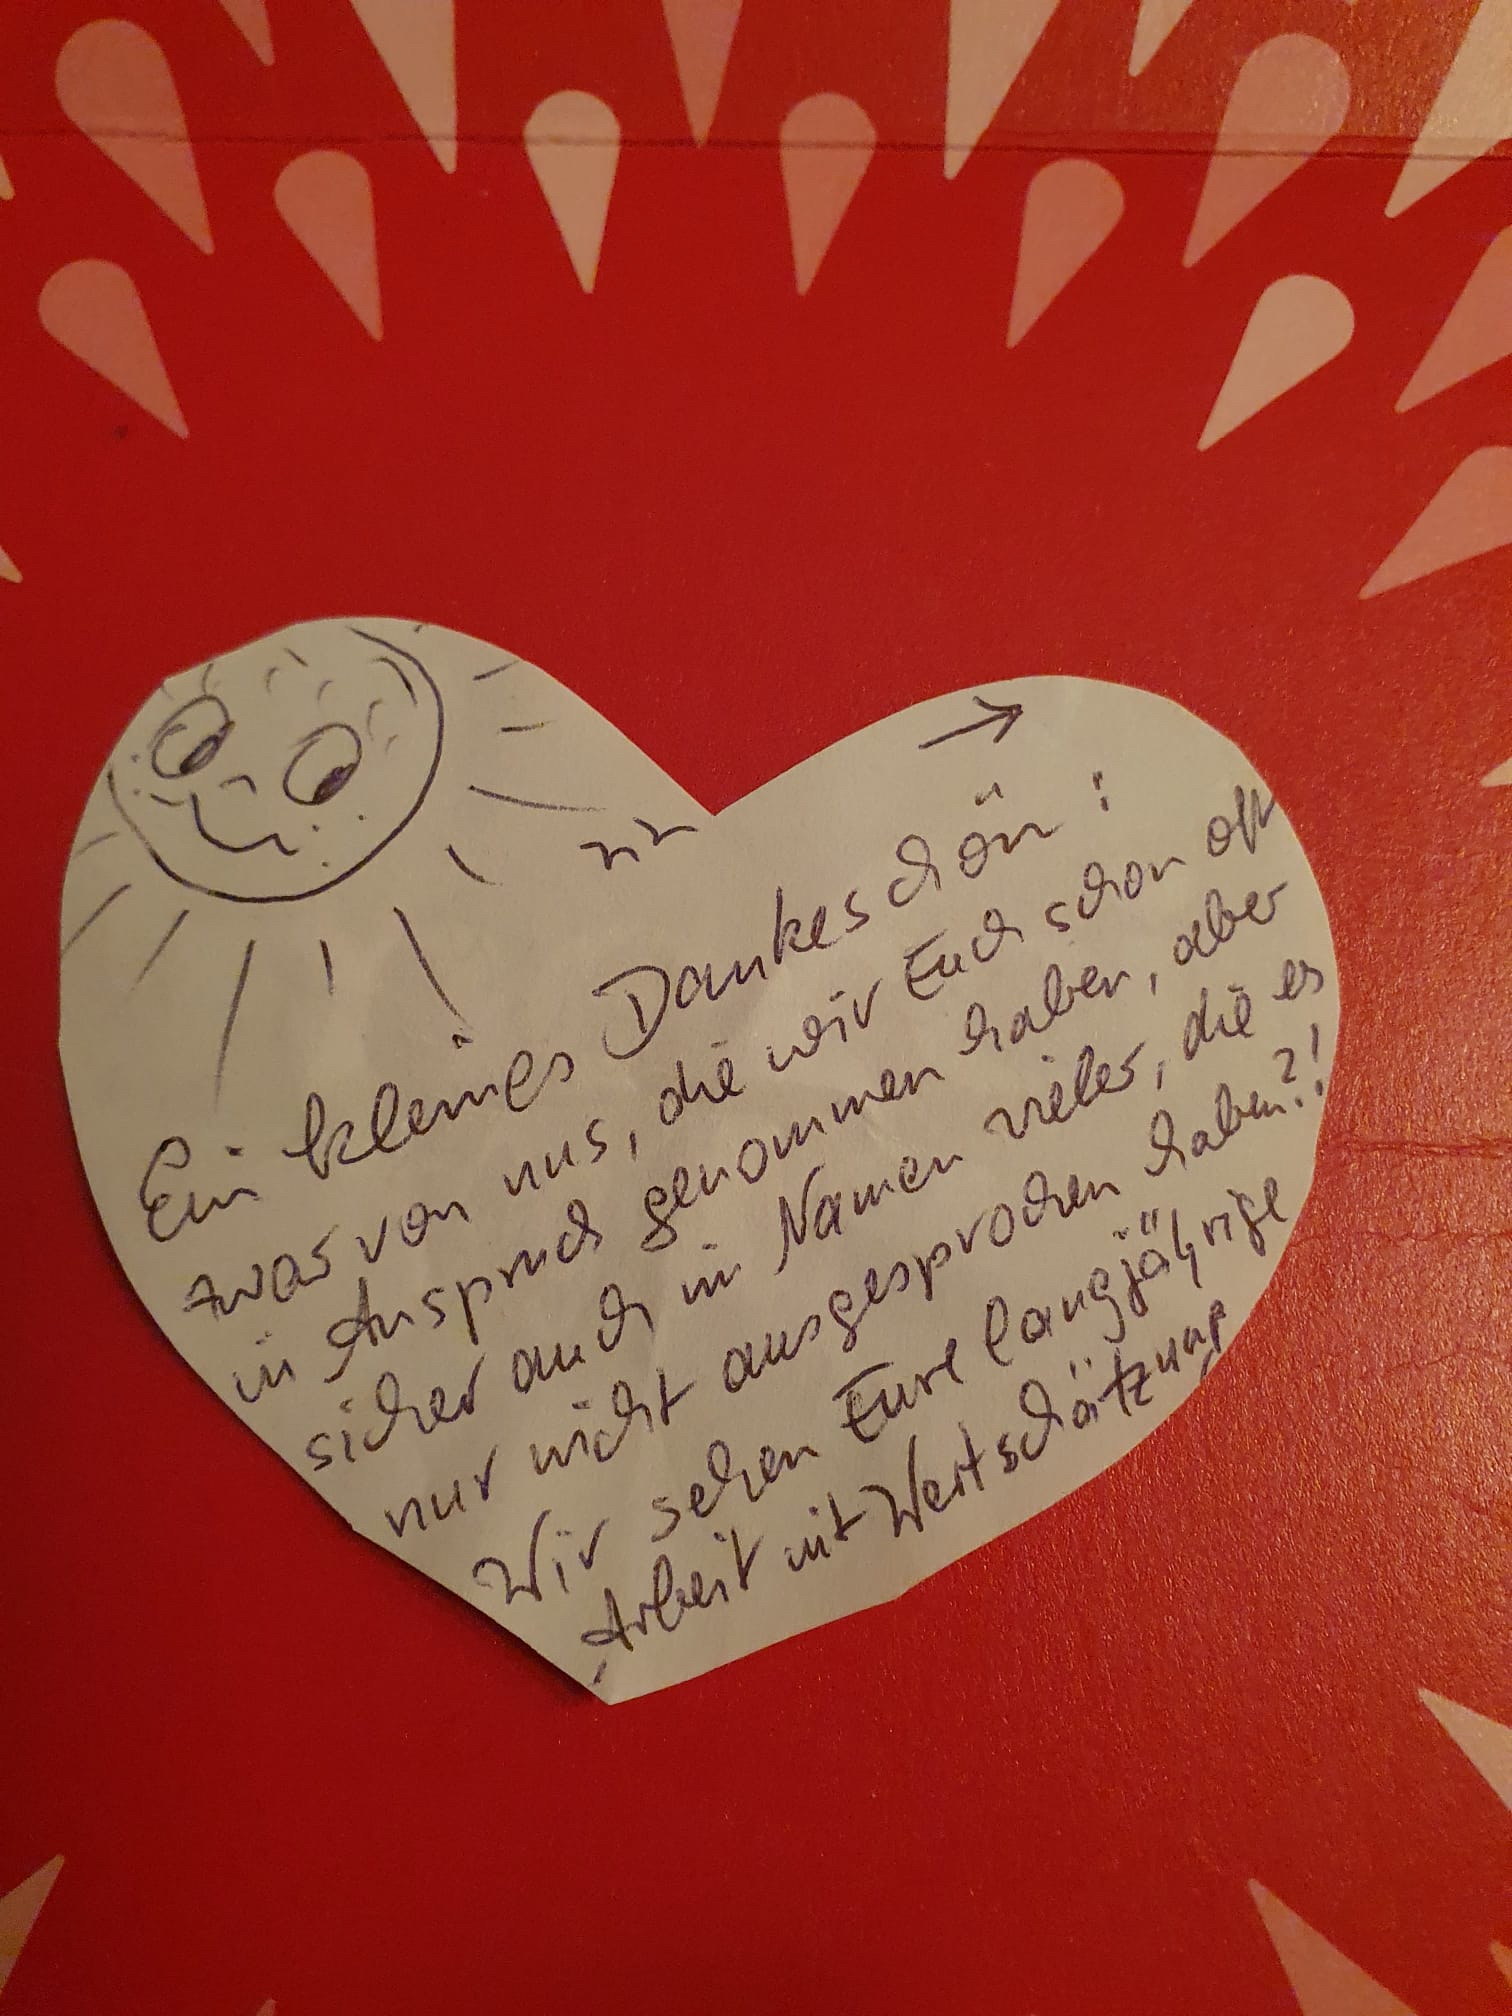 Ein kleines Dankeschön:
zwar von uns, die wir Euch schon oft
in Anspruch genommen haben, aber
sicher auch im Namen vieler, die es
nur nicht ausgesprochen haben?!
Wir sehen Eure langjährige
Arbeit mit Wertschätzung